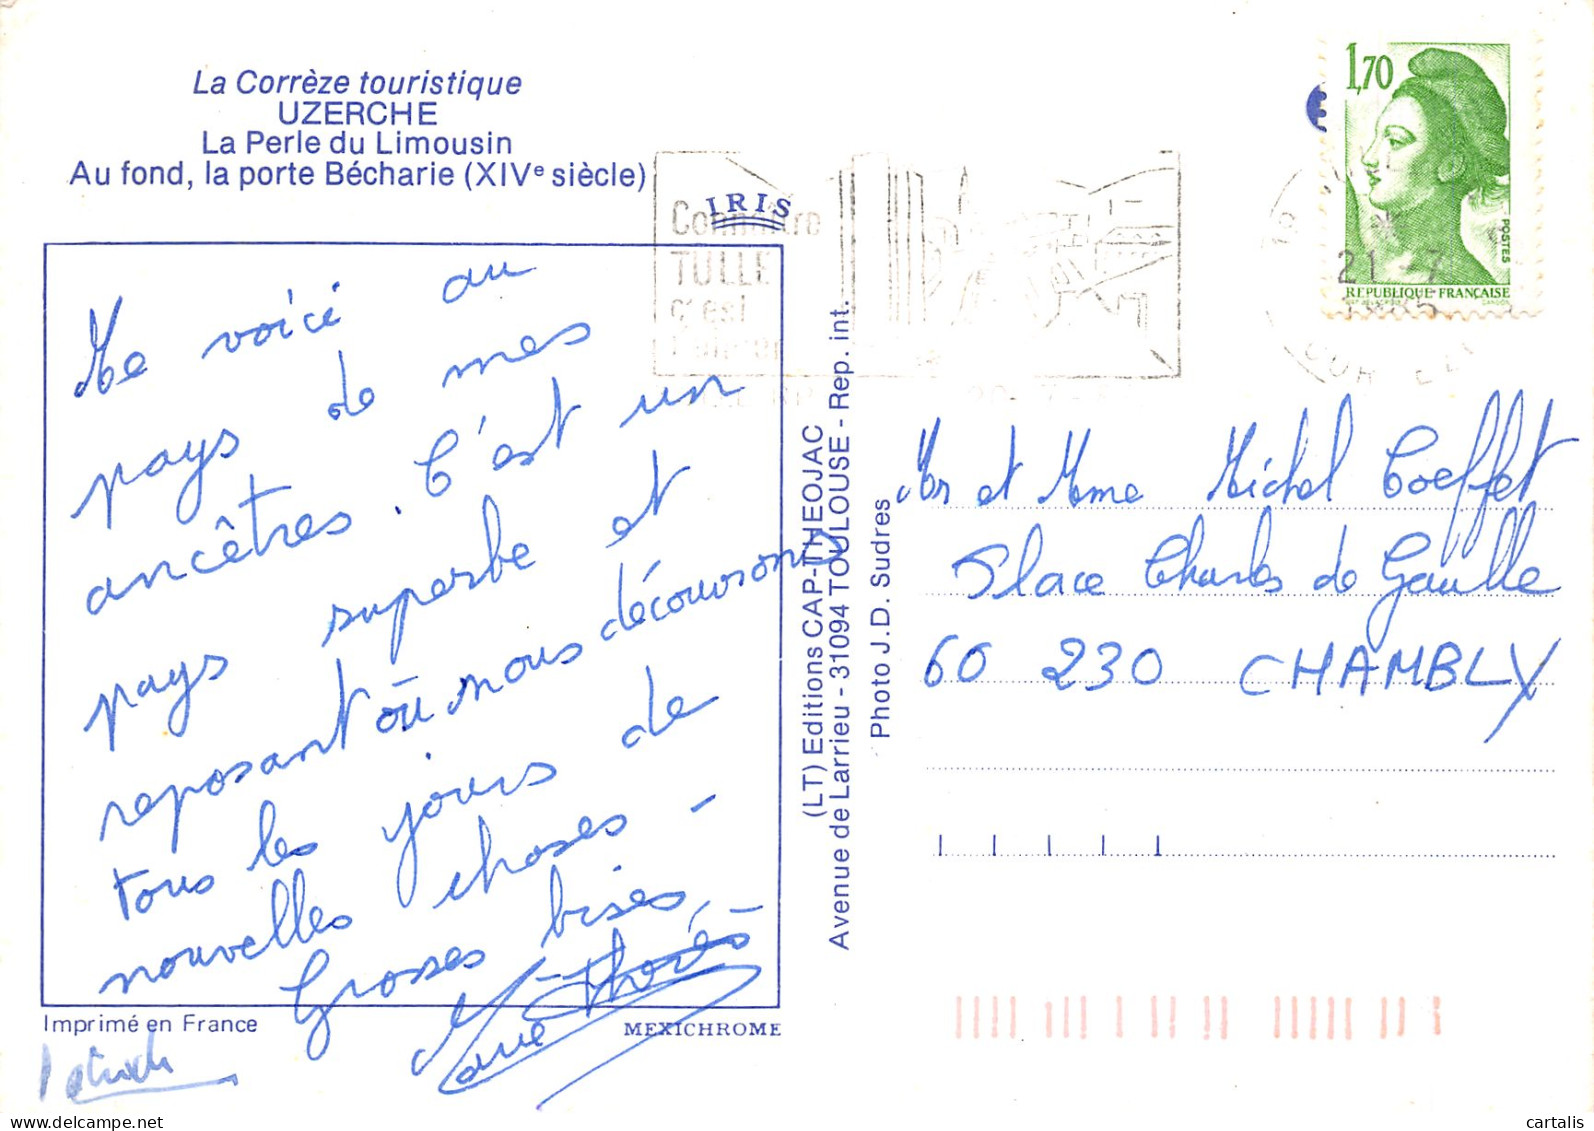 La Corrèze touristique
UZERCHE
La Perle du Limousin
Au fond, la porte Bécharie (XIVe siècle)
IRIS
Connaître
TULLE
c'est
Me voici au
pays de mes
ancêtres. C'est un
pays superbe et
reposant où nous découvrons
tous les jours de
nouvelles choses -
Grosses bises,
Imprimé en France
MEXICHROME
Patrick
(LT) Editions CAP-THEOJAC
Avenue de Larrieu - 31094 TOULOUSE - Rep. int.
Photo J.D. Sudres
1,70
POSTES
REPUBLIQUE FRANÇAISE
21 -7
Mr et Mme Michel Coeffet
Place Charles de Gaulle
60 230 CHAMBLY
www.delcampe.net
cartalis